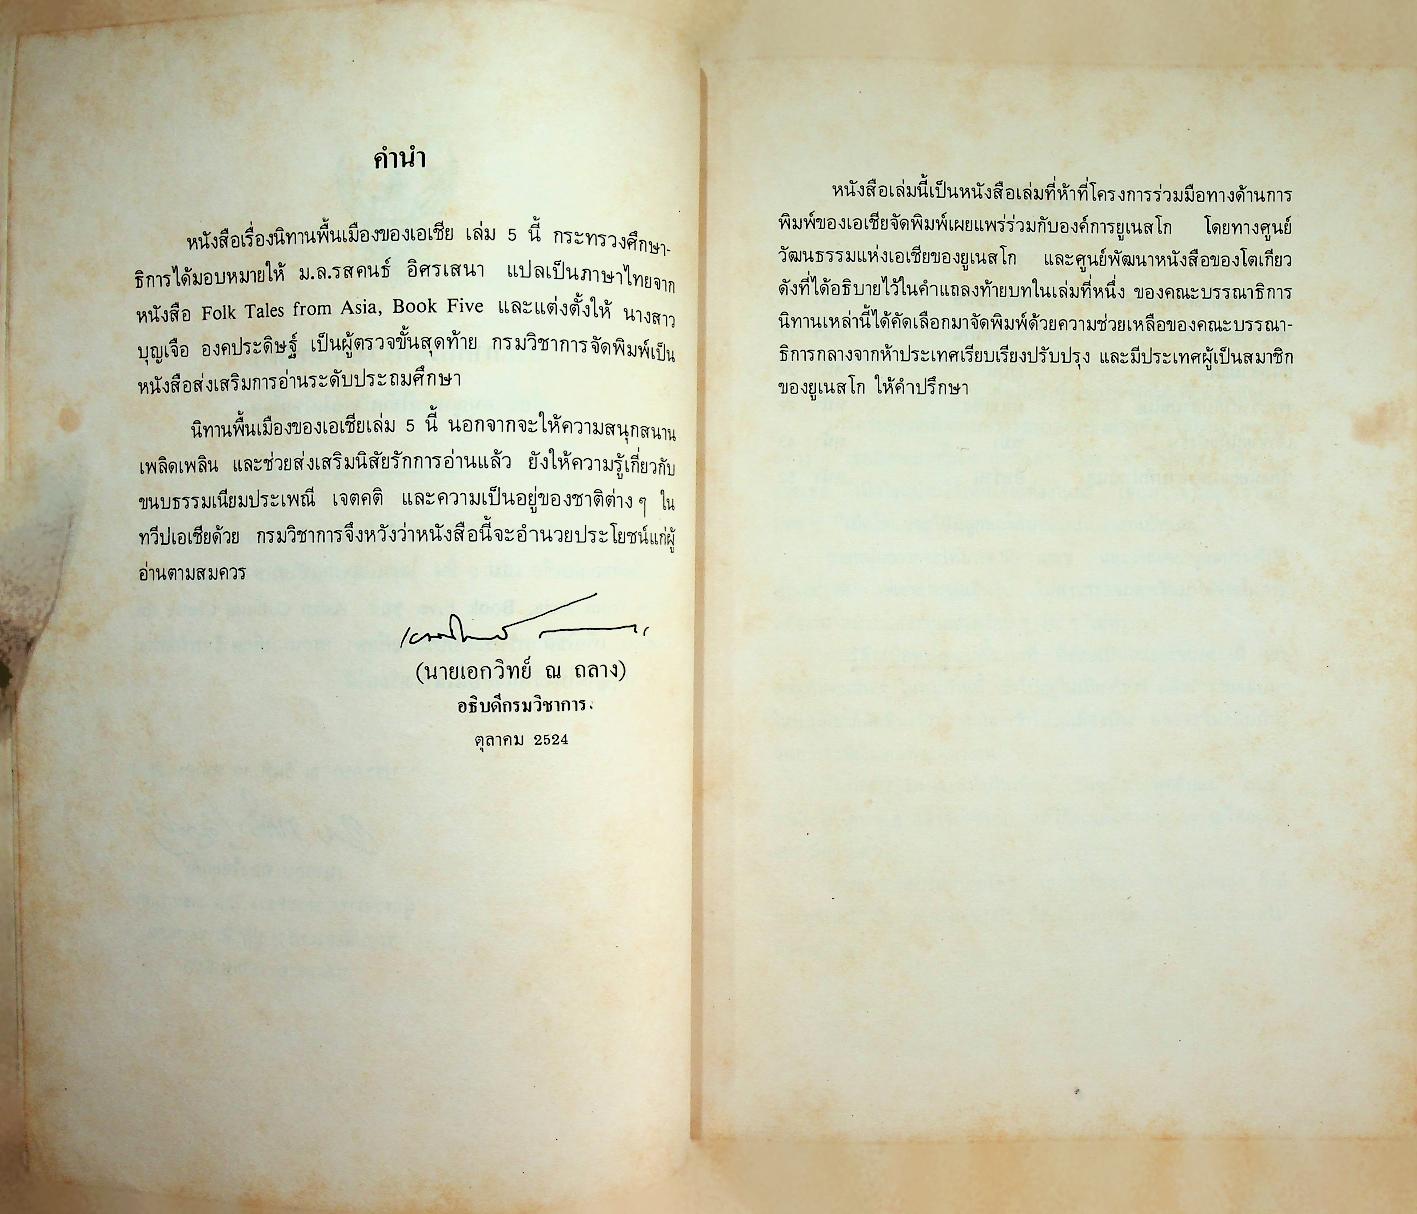 คำนำ
หนังสือเรื่องนิทานพื้นเมืองของเอเซีย เล่ม 5 นี้ กระทรวงศึกษา-
ธิการได้มอบหมายให้ ม.ล.รสคนธ์ อิศรเสนา แปลเป็นภาษาไทยจาก
หนังสือ Folk Tales from Asia, Book Five และแต่งตั้งให้ นางสาว
บุญเจือ องคประดิษฐ์ เป็นผู้ตรวจขั้นสุดท้าย กรมวิชาการจัดพิมพ์เป็น
หนังสือส่งเสริมการอ่านระดับประถมศึกษา
นิทานพื้นเมืองของเอเซียเล่ม 5 นี้ นอกจากจะให้ความสนุกสนาน
เพลิดเพลิน และช่วยส่งเสริมนิสัยรักการอ่านแล้ว ยังให้ความรู้เกี่ยวกับ
ขนบธรรมเนียมประเพณี เจตคติ และความเป็นอยู่ของชาติต่าง ๆ ใน
ทวีปเอเซียด้วย กรมวิชาการจึงหวังว่าหนังสือนี้จะอำนวยประโยชน์แก่ผู้
อ่านตามสมควร
(นายเอกวิทย์ ณ ถลาง)
อธิบดีกรมวิชาการ
ตุลาคม 2524
หนังสือเล่มนี้เป็นหนังสือเล่มที่ห้าที่โครงการร่วมมือทางด้านการ
พิมพ์ของเอเซียจัดพิมพ์เผยแพร่ร่วมกับองค์การยูเนสโก โดยทางศูนย์
วัฒนธรรมแห่งเอเซียของยูเนสโก และศูนย์พัฒนาหนังสือของโตเกียว
ดังที่ได้อธิบายไว้ในคำแถลงท้ายบทในเล่มที่หนึ่ง ของคณะบรรณาธิการ
นิทานเหล่านี้ได้คัดเลือกมาจัดพิมพ์ด้วยความช่วยเหลือของคณะบรรณา-
ธิการกลางจากห้าประเทศเรียบเรียงปรับปรุง และมีประเทศผู้เป็นสมาชิก
ของยูเนสโก ให้คำปรึกษา